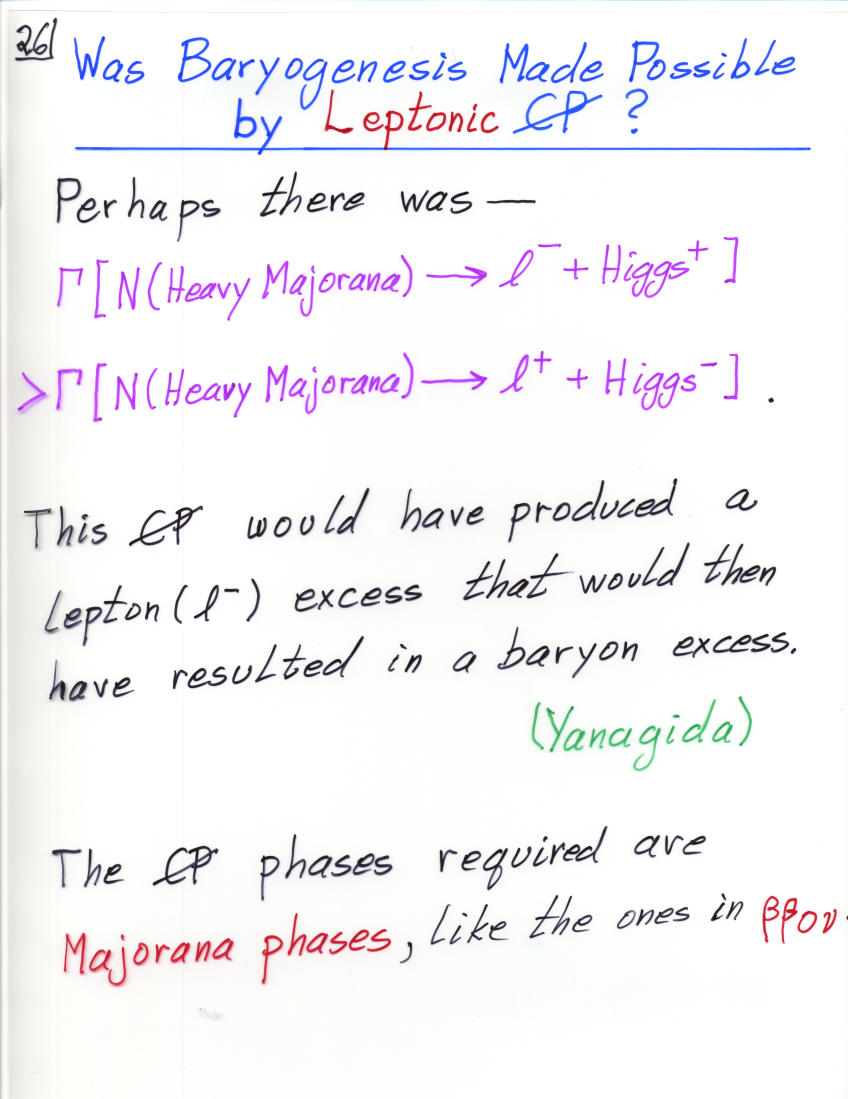 26
Was Baryogenesis Made Possible
by Leptonic C̸P̸ ?
Perhaps there was —
Γ[N(Heavy Majorana) → l⁻ + Higgs⁺]
> Γ[N(Heavy Majorana) → l⁺ + Higgs⁻] .
This C̸P̸ would have produced a
lepton (l⁻) excess that would then
have resulted in a baryon excess.
(Yanagida)
The C̸P̸ phases required are
Majorana phases, like the ones in ββ0ν.